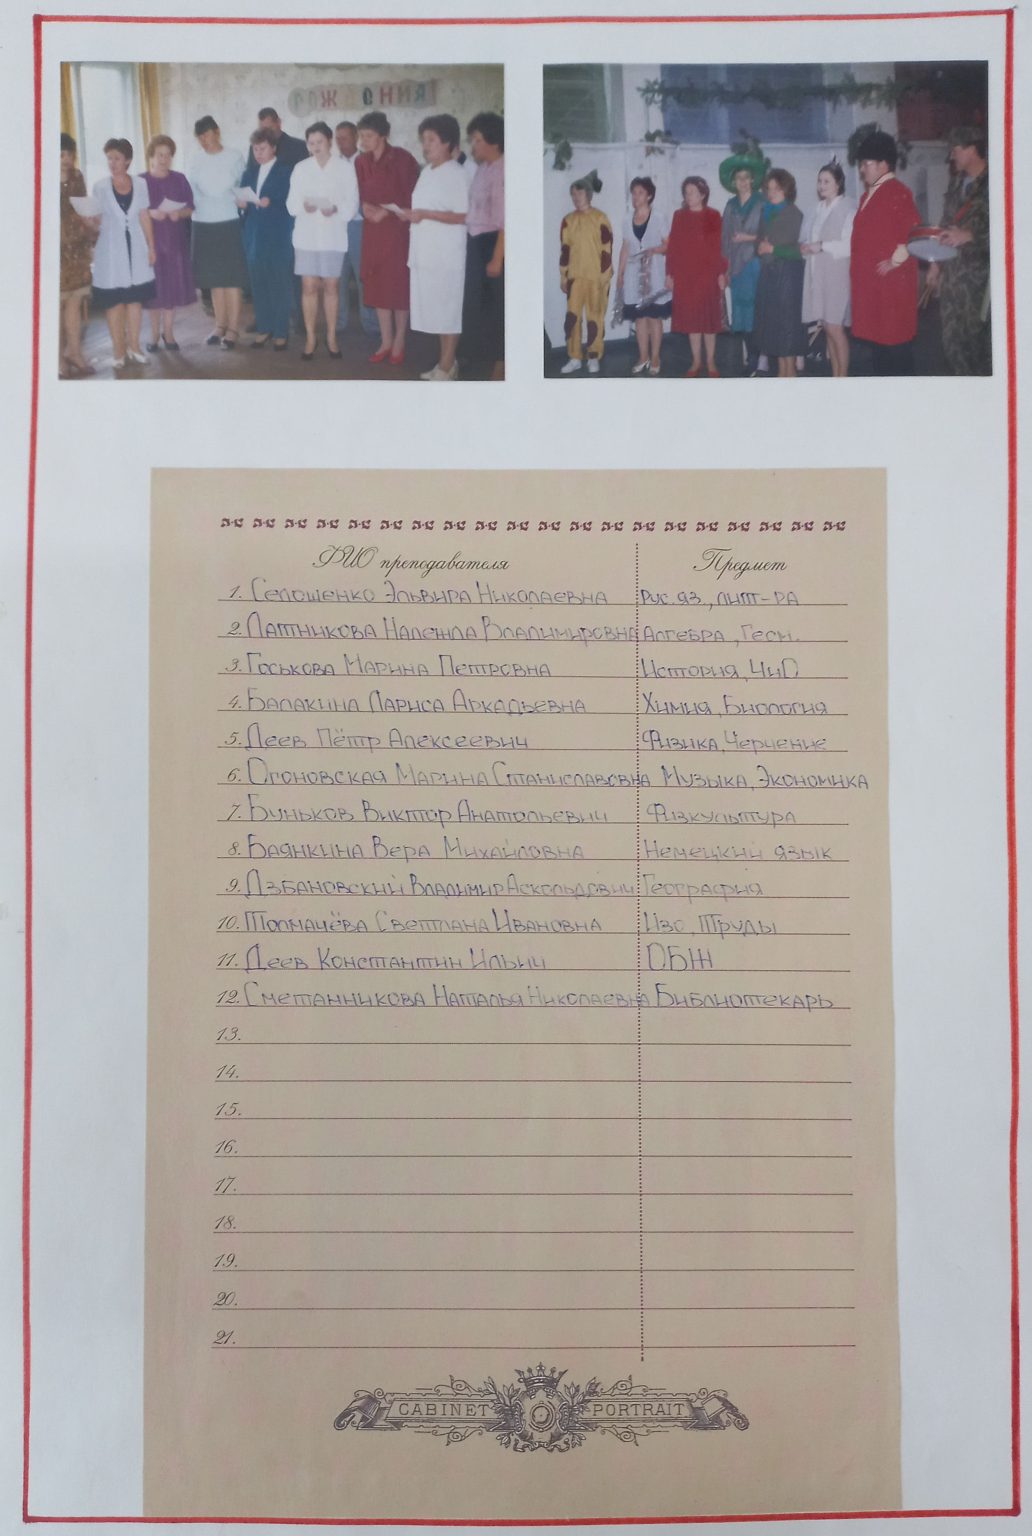 РОЖДЕНИЯ!
ФИО преподавателя Предмет
1. Селошенко Эльвира Николаевна Рус. яз., лит-ра
2. Латникова Надежда Владимировна Алгебра, Геом.
3. Госькова Марина Петровна История, ЧиО
4. Балакина Лариса Аркадьевна Химия, Биология
5. Деев Пётр Алексеевич Физика, Черчение
6. Огоновская Марина Станиславовна Музыка, Экономика
7. Буньков Виктор Анатольевич Физкультура
8. Баянкина Вера Михайловна Немецкий язык
9. Дзбановский Владимир Аскольдович География
10. Толмачёва Светлана Ивановна Изо, Труды
11. Деев Константин Ильич ОБЖ
12. Сметанникова Наталья Николаевна Библиотекарь
13.
14.
15.
16.
17.
18.
19.
20.
21.
CABINET PORTRAIT